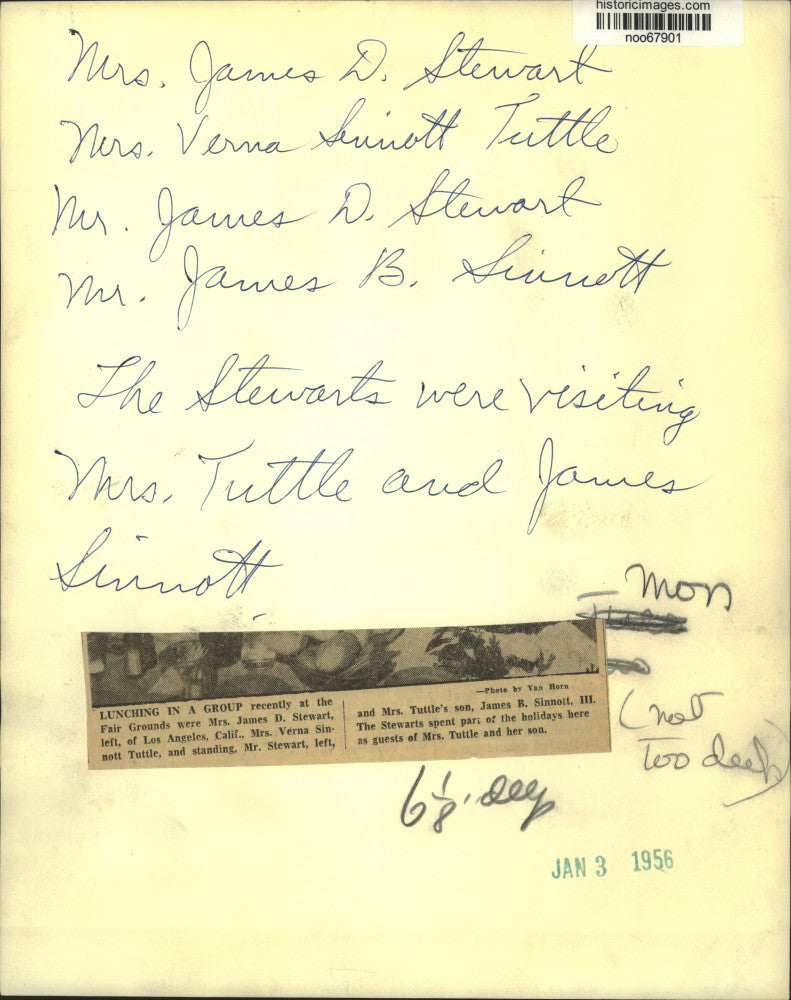 historicimages.com
noo67901
Mrs. James D. Stewart
Mrs. Verna Sinnott Tuttle
Mr. James D. Stewart
Mr. James B. Sinnott
The Stewarts were visiting
Mrs. Tuttle and James
Sinnott
Mon
—Photo by Van Horn
LUNCHING IN A GROUP recently at the
Fair Grounds were Mrs. James D. Stewart,
left, of Los Angeles, Calif., Mrs. Verna Sin-
nott Tuttle, and standing, Mr. Stewart, left,
and Mrs. Tuttle's son, James B. Sinnott, III.
The Stewarts spent part of the holidays here
as guests of Mrs. Tuttle and her son.
(not
Too deep)
6 1/8" deep
JAN 3 1956